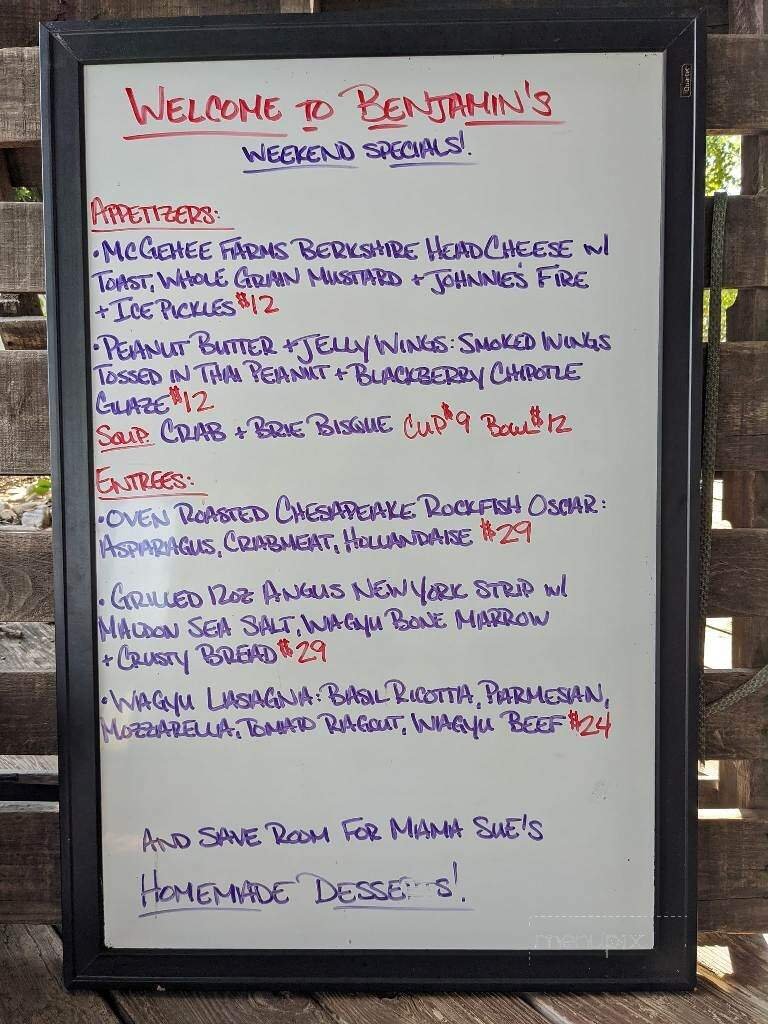 WELCOME TO BENJAMIN'S
WEEKEND SPECIALS!
APPETIZERS:
• MCGEHEE FARMS BERKSHIRE HEAD CHEESE W/
TOAST, WHOLE GRAIN MUSTARD + JOHNNIE'S FIRE
+ ICE PICKLES $12
• PEANUT BUTTER + JELLY WINGS: SMOKED WINGS
TOSSED IN THAI PEANUT + BLACKBERRY CHIPOTLE
GLAZE $12
SOUP: CRAB + BRIE BISQUE CUP $9 BOWL $12
ENTREES:
• OVEN ROASTED CHESAPEAKE ROCKFISH OSCAR:
ASPARAGUS, CRABMEAT, HOLLANDAISE $29
• GRILLED 12OZ ANGUS NEW YORK STRIP W/
MALDON SEA SALT, WAGYU BONE MARROW
+ CRUSTY BREAD $29
• WAGYU LASAGNA: BASIL RICOTTA, PARMESAN,
MOZZARELLA, TOMATO RAGOUT, WAGYU BEEF $24
AND SAVE ROOM FOR MAMA SUE'S
HOMEMADE DESSERTS!
Quartet
menupix